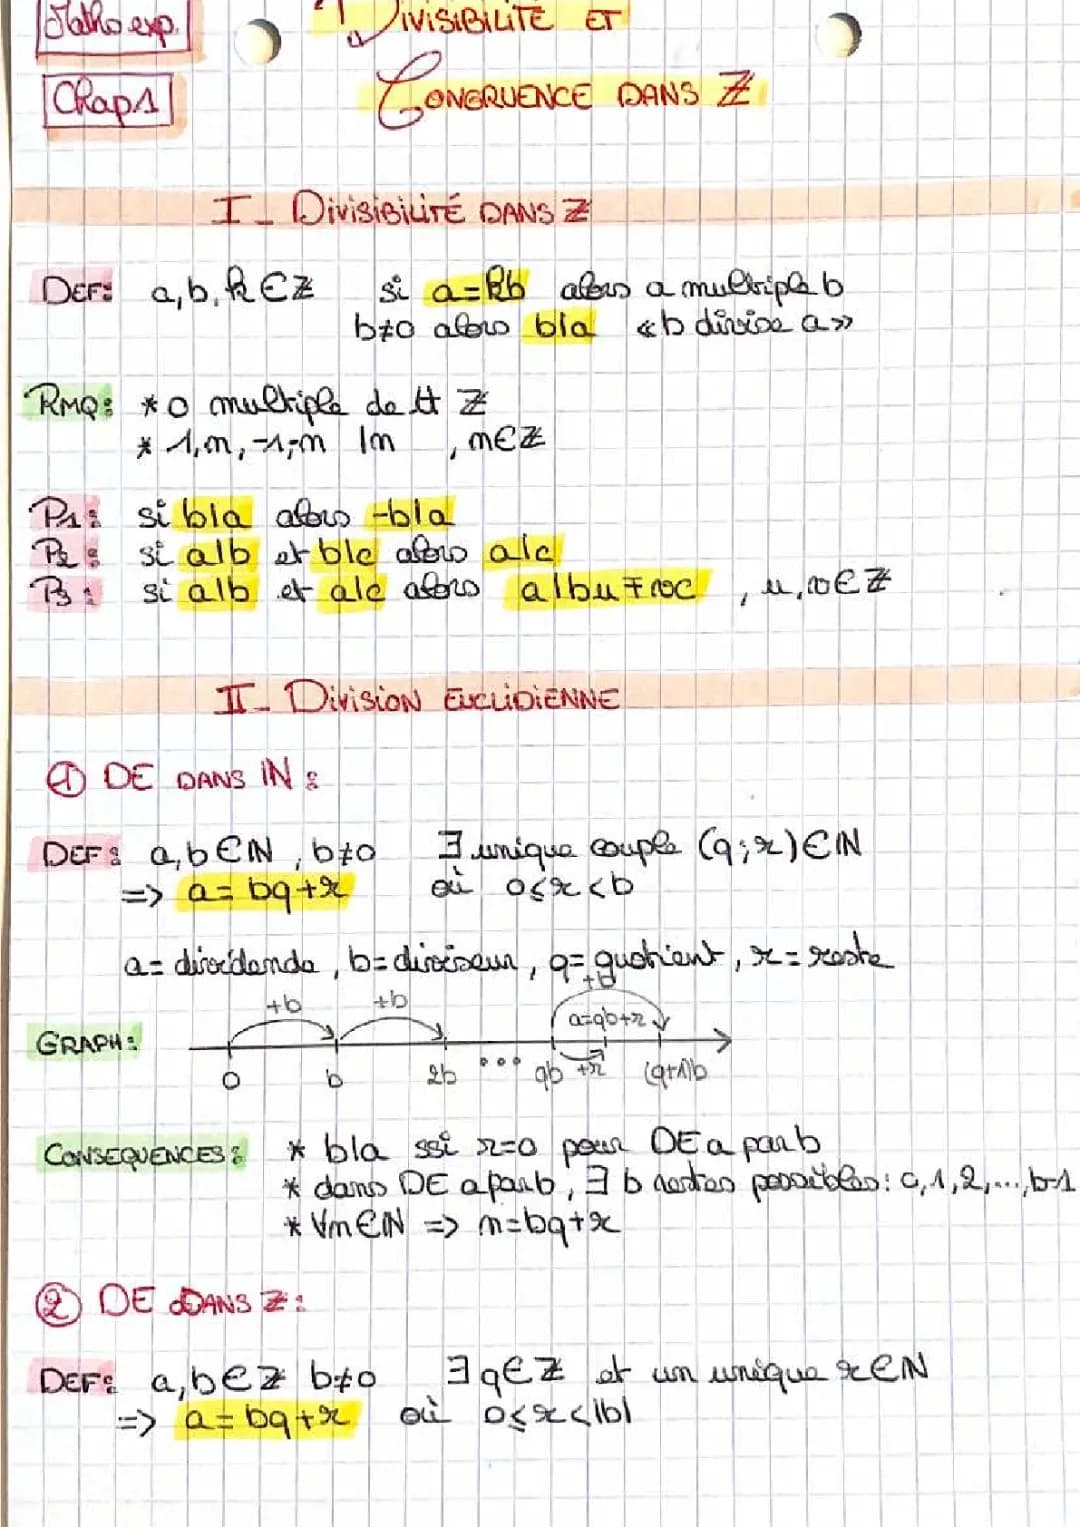 Maths exp.
DIVISIBILITÉ ET
Chap1
CONGRUENCE DANS ℤ
I_ DIVISIBILITÉ DANS ℤ
DEF: a,b,k∈ℤ si a=kb alors a multiple b
b≠0 alors b|a «b divise a»
RMQ: * 0 multiple de tt ℤ
* 1,n,-1,-n |n , n∈ℤ
P1: si b|a alors -b|a
P2: si a|b et b|c alors a|c
P3: si a|b et a|c alors a|bu∓vc , u,v∈ℤ
II_ DIVISION EUCLIDIENNE
① DE DANS ℕ:
DEF: a,b∈ℕ, b≠0 ∃ unique couple (q;r)∈ℕ
=> a=bq+r où 0≤r<b
a= dividende, b=diviseur, q= quotient, r= reste
+b +b +b
GRAPH: a=qb+r
0 b 2b ... qb +r (q+1)b
CONSEQUENCES: * b|a ssi r=0 pour DE a par b
* dans DE a par b, ∃ b restes possibles: 0,1,2,...,b-1
* ∀n∈ℕ => n=bq+r
② DE DANS ℤ:
DEF: a,b∈ℤ b≠0 ∃q∈ℤ et un unique r∈ℕ
=> a=bq+r où 0≤r<|b|